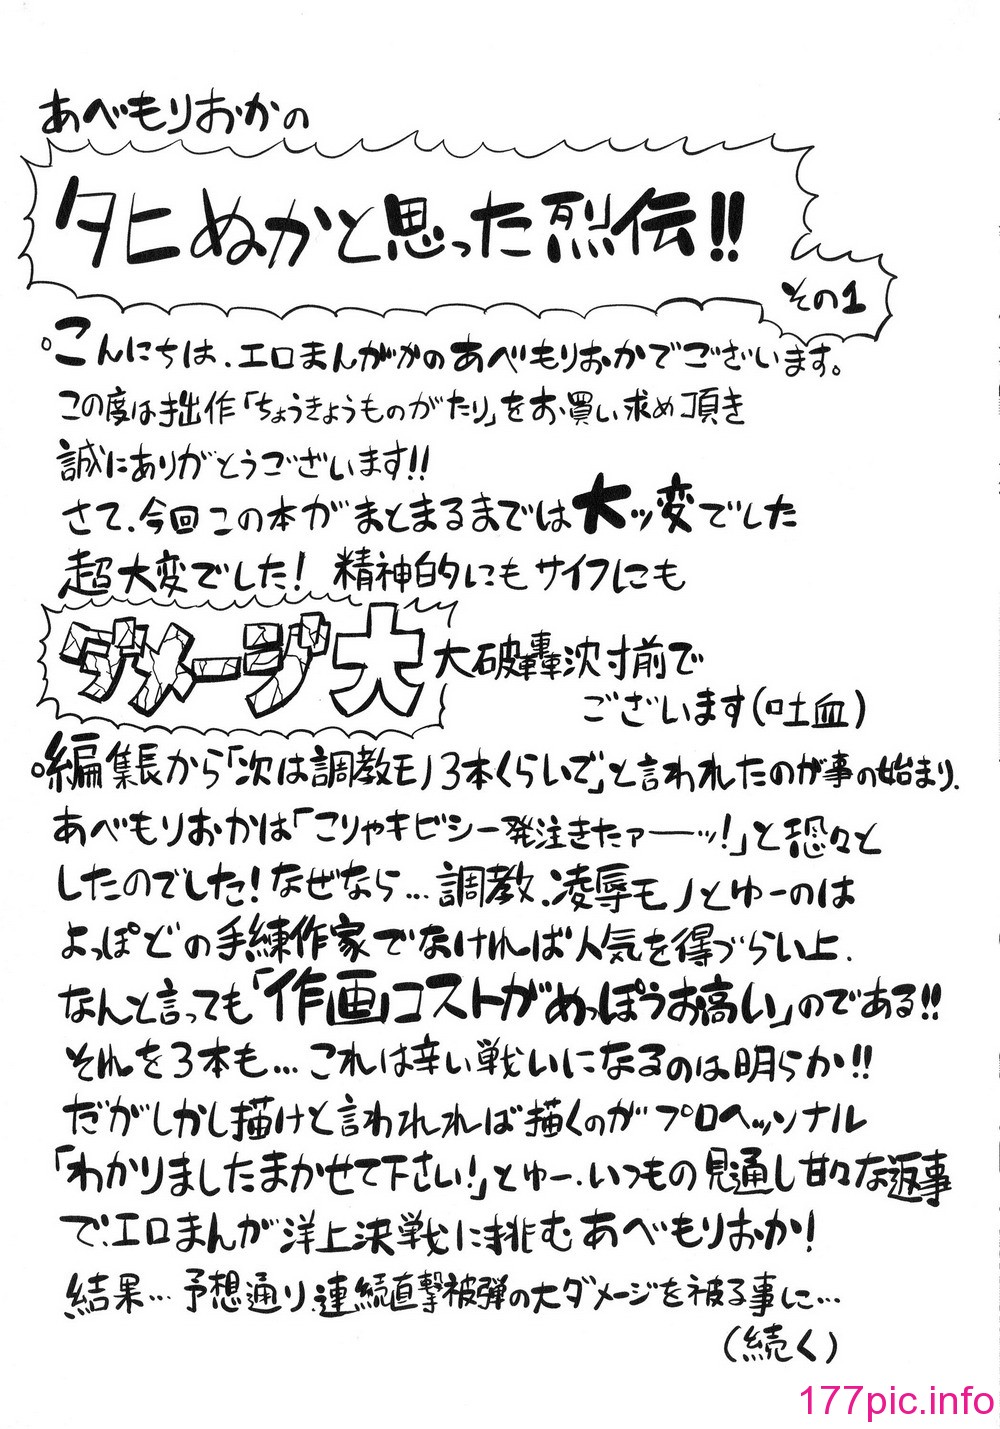 あべもりおかの
タヒぬかと思った烈伝!!
その1
。こんにちは、エロまんがかのあべもりおかでございます。
この度は拙作「ちょうきょうものがたり」をお買い求め頂き
誠にありがとうございます!!
さて、今回この本がまとまるまでは大ッ変でした
超大変でした!精神的にもサイフにも
ダメージ大 大破轟沈寸前で
ございます(吐血)
。編集長から「次は調教モノ3本くらいで」と言われたのが事の始まり、
あべもりおかは「こりゃキビシー発注きたァーーッ!」と恐々と
したのでした!なぜなら…調教、凌辱モノとゆーのは
よっぽどの手練作家でなければ人気を得づらい上、
なんと言っても「作画コストがめっぽうお高い」のである!!
それを3本も…これは辛い戦いになるのは明らか!!
だがしかし描けと言われれば描くのがプロヘッソナル
「わかりましたまかせて下さい!」とゆー、いつもの見通し甘々な返事
で、エロまんが洋上決戦に挑むあべもりおか!
結果…予想通り、連続直撃被弾の大ダメージを被る事に…
(続く)
177pic.info